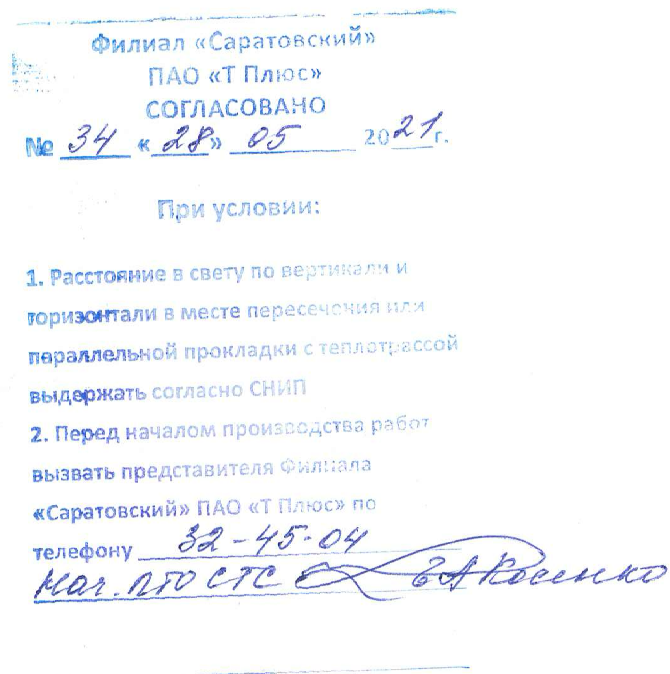 Филиал «Саратовский»
ПАО «Т Плюс»
СОГЛАСОВАНО
№ 34 «28» 05 2021г.
При условии:
1. Расстояние в свету по вертикали и
горизонтали в месте пересечения или
параллельной прокладки с теплотрассой
выдержать согласно СНИП
2. Перед началом производства работ
вызвать представителя Филиала
«Саратовский» ПАО «Т Плюс» по
телефону 32-45-04
Нач. ПТО СТС Косенко